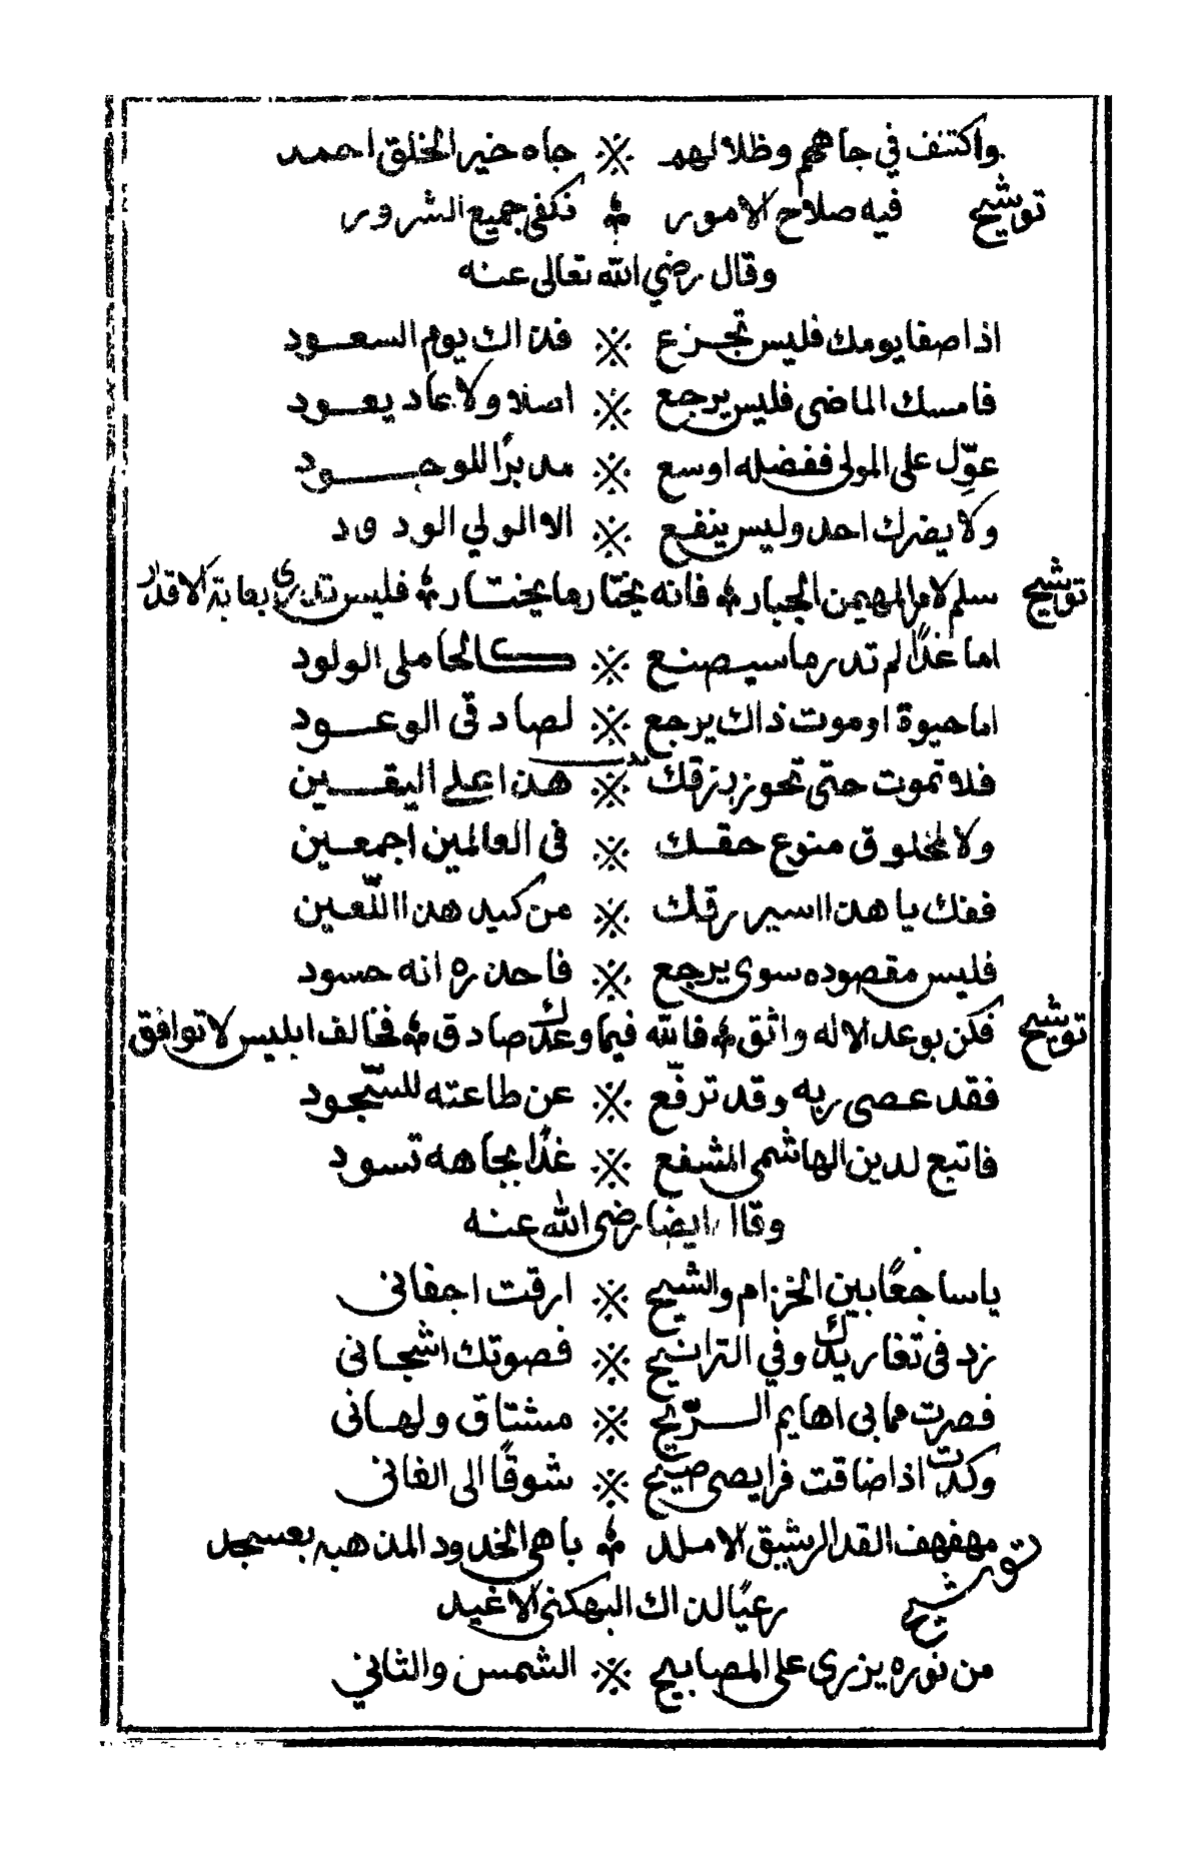 واكتنف في جاههم وظلالهم ※ جاه خير الخلق احمد
توشيح فيه صلاح الامور ※ نكفى جميع الشرور
وقال رضي الله تعالى عنه
اذا صفا يومك فليس تجزع ※ فذاك يوم السعود
فامسك الماضى فليس يرجع ※ اصلا ولا عاد يعود
عوّل على المولى ففضله اوسع ※ مدبرًا للوجود
ولا يضرك احد وليس ينفع ※ الا المولي الودود
توشيح سلم لامر المهيمن الجبار ※ فانه يختار ما يختار ※ فليس تدرى بعابة الاقدار
اما غدًا لم تدر ما سيصنع ※ كالحاملى الولود
اما حيوة او موت ذاك يرجع ※ لصادق الوعود
فلا تموت حتى تحوز رزقك ※ هذا على اليقين
ولا لمخلوق منوع حقك ※ فى العالمين اجمعين
ففك يا هذا اسير رقك ※ من كيد هذا اللّعين
فليس مقصوده سوى يرجع ※ فاحذره انه حسود
توشيح فكن بوعد الاله واثق ※ فالله فيما وعدك صادق ※ فخالف ابليس لا توافق
فقد عصى ربه وقد ترفّع ※ عن طاعته للسّجود
فاتبع لدين الهاشمى المشفع ※ غدًا بجاهه تسود
وقال ايضا رضى الله عنه
يا ساجعًا بين الخزام والشيح ※ ارقت اجفانى
زد فى تغاريدك وفي الترانيح ※ فصوتك اشجانى
فصرت مما بى اهايم الرّيح ※ مشتاق ولهانى
وكدت اذا ضاقت فرايصى صيح ※ شوقًا الى الغانى
توشيح مهفهف القد الرشيق الاملد ※ باهى الخدود المذهبه بعسجد
رعيًا لذاك البهكنى الاغيد
من نوره يزرى على المصابيح ※ الشمس والثاني